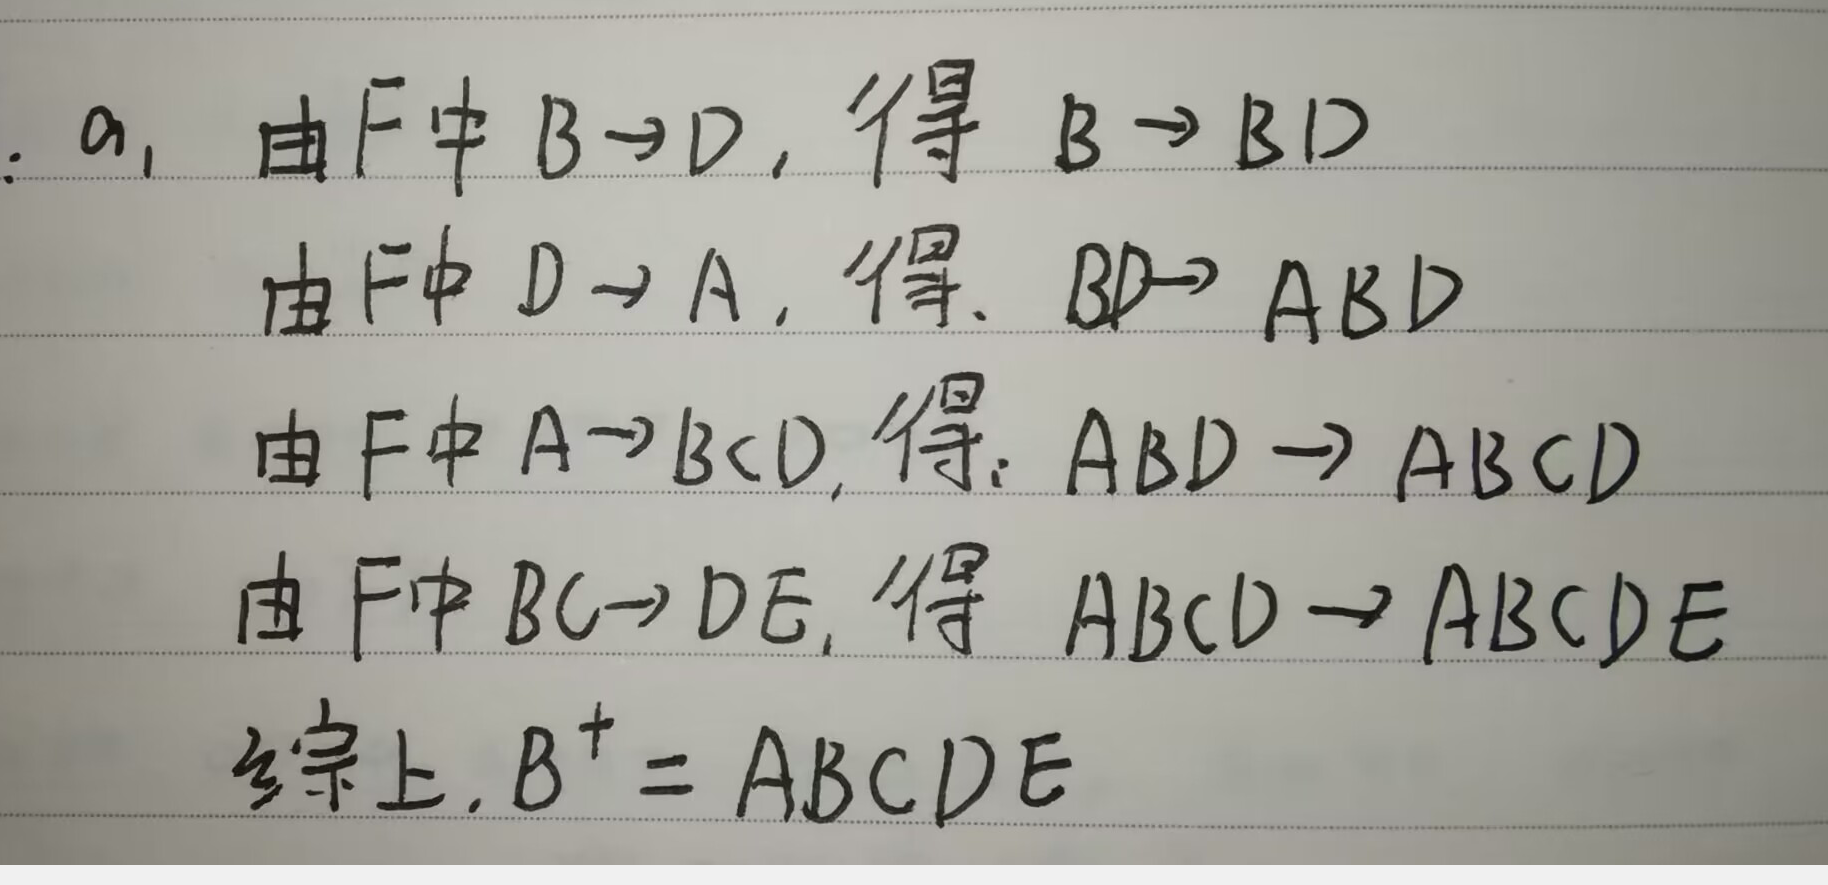 : a, 由F中 B→D, 得 B→BD
由F中 D→A, 得. BD→ABD
由F中 A→BCD, 得: ABD→ABCD
由F中 BC→DE, 得 ABCD→ABCDE
综上. B⁺ = ABCDE